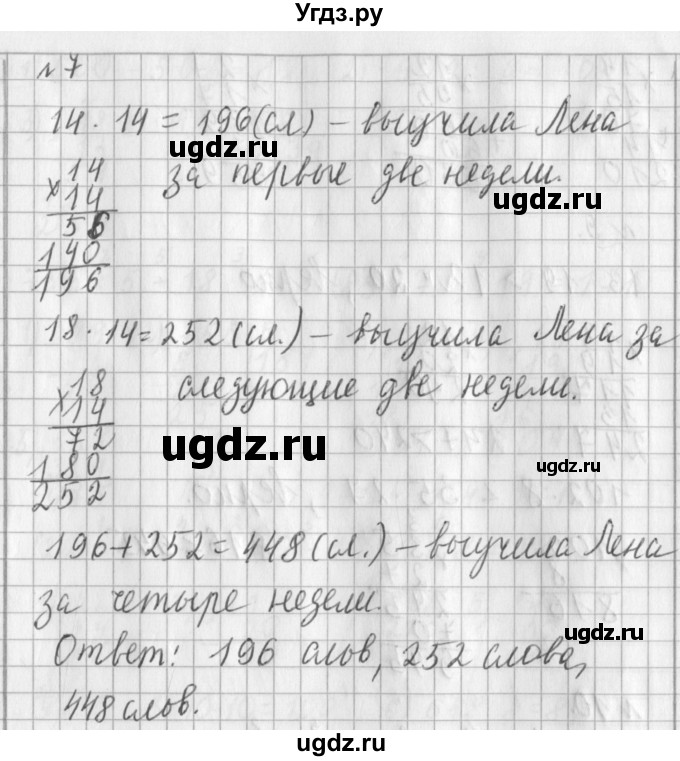 Угдз.ру
№ 7
14 · 14 = 196 (сл) – выучила Лена
за первые две недели.
× 14
14
56
140
196
18 · 14 = 252 (сл.) – выучила Лена за
следующие две недели.
× 18
14
72
180
252
196 + 252 = 448 (сл.) – выучила Лена
за четыре недели.
Ответ: 196 слов, 252 слова,
448 слов.
ugdz.ru
ugdz.ru
ugdz.ru
ugdz.ru
ugdz.ru
ugdz.ru